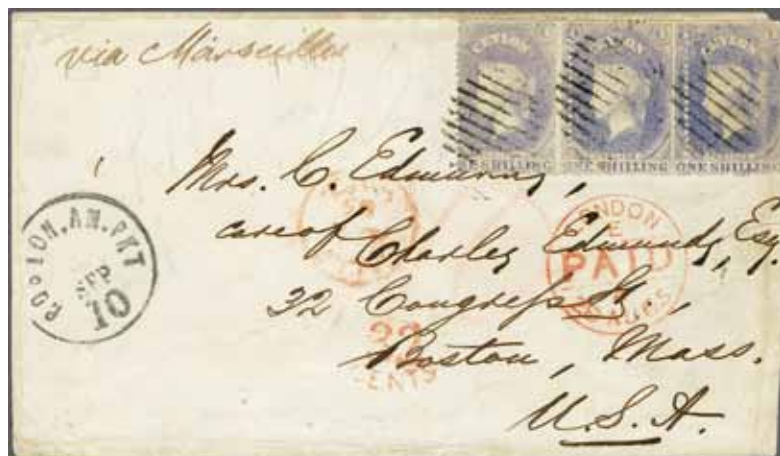 via Marseilles
CEYLON CEYLON CEYLON
E SHILLING ONE SHILLING ONE SHILLING
Mrs. C. Edmunds,
care of Charles Edmunds, Esq
32 Congress St.,
Boston, Mass.
U.S.A.
BOSTON. AM. PKT
SEP
10
LONDON
E
PAID
CENTS